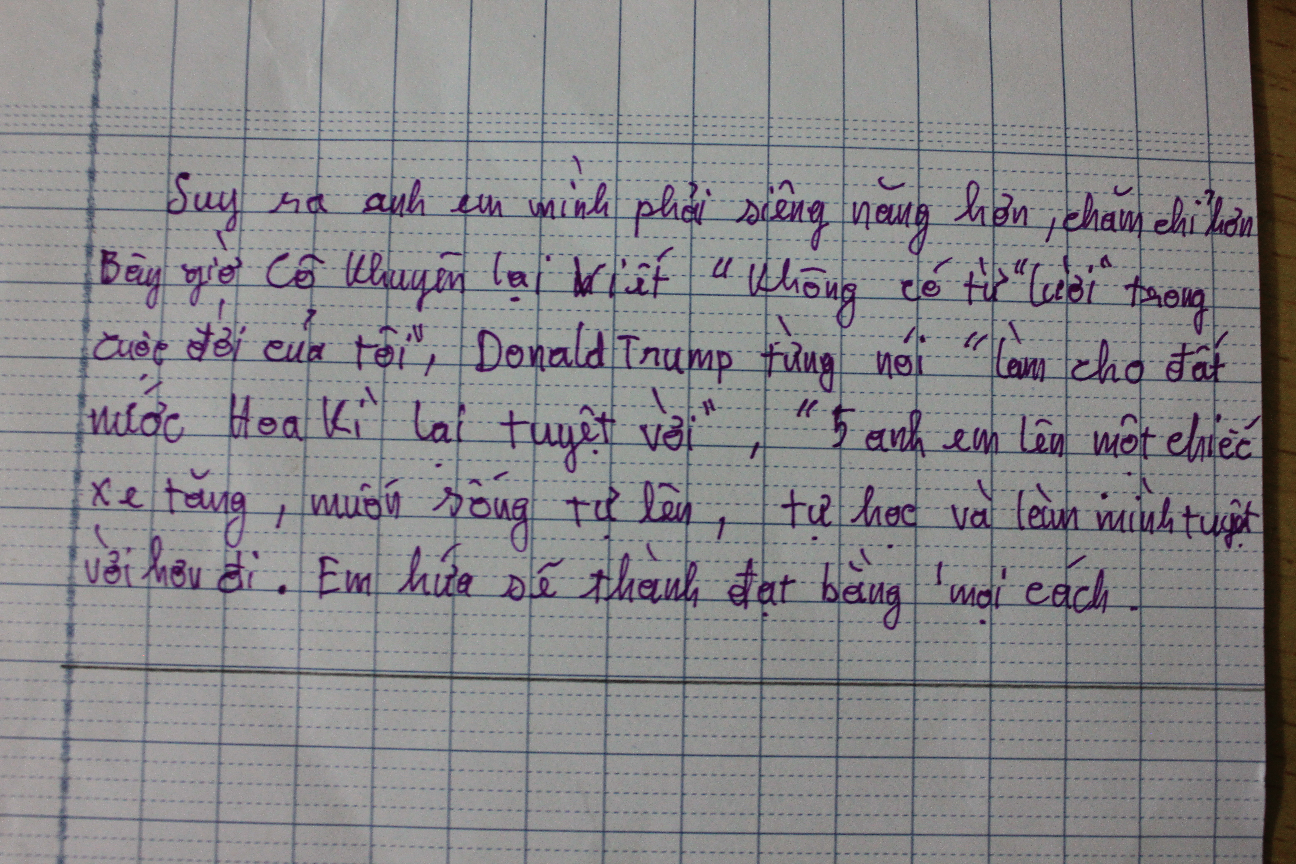 Suy ra anh em mình phải siêng năng hơn, chăm chỉ hơn
Bây giờ Cô Khuyên lại Kiết "Không có từ "lười" trong
cuộc đời của tôi", Donald Trump từng nói "làm cho đất
nước Hoa Kì lại tuyệt vời", "5 anh em lên một chiếc
xe tăng, muốn sống tự lên, tự học và làm mình tuyệt
vời hơn đi. Em hứa sẽ thành đạt bằng mọi cách.